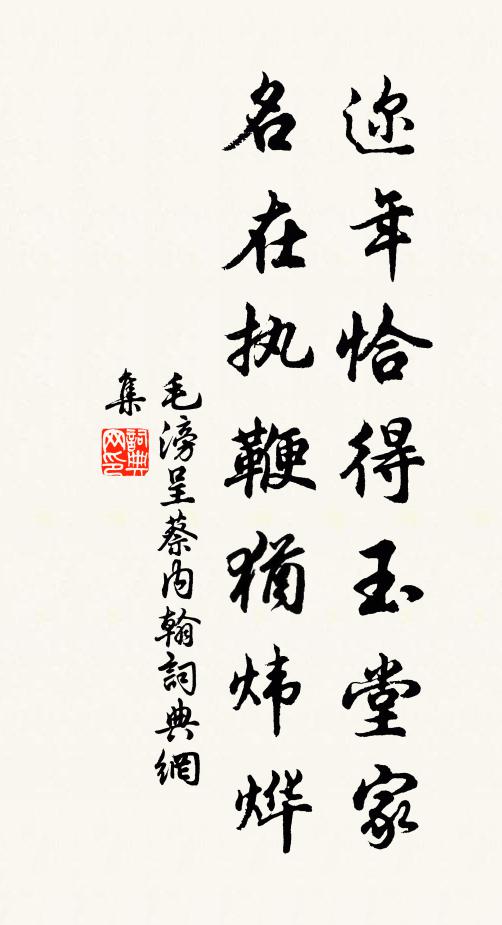 迩年恰得玉堂家
名在执鞭犹炜烨
毛滂呈蔡内翰詞典網
集
詞典网印